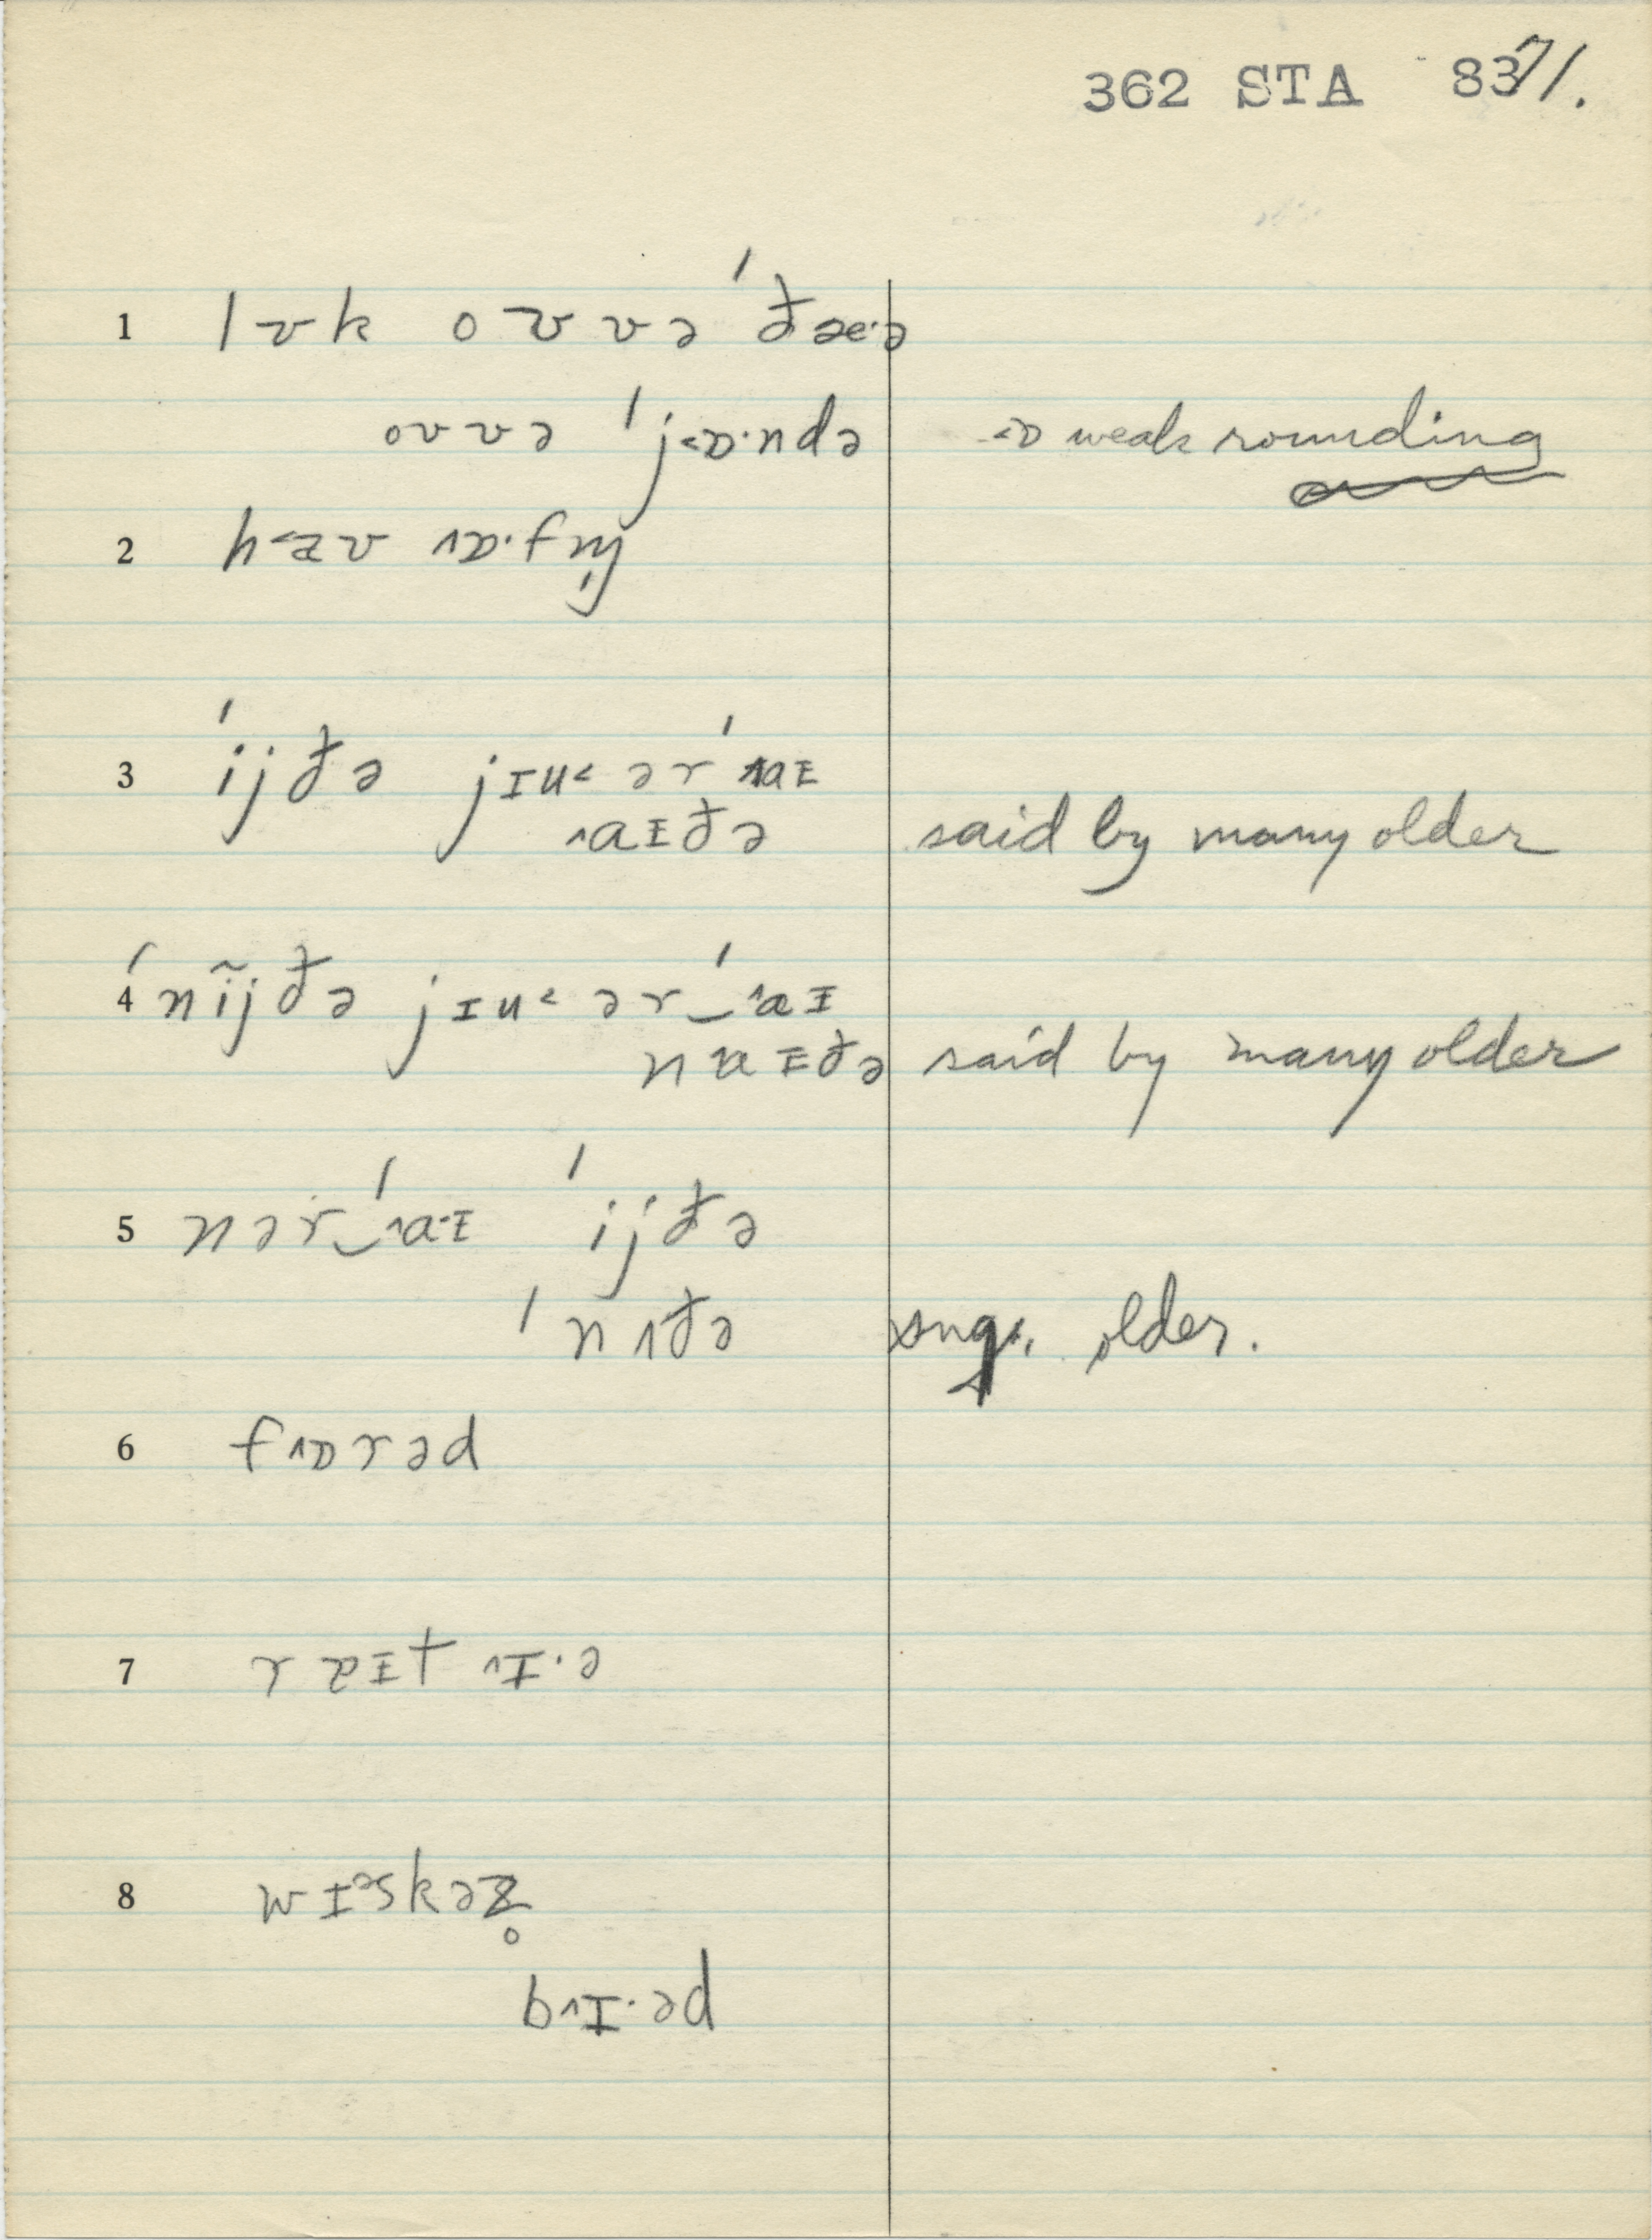 362 STA 8371.
1 lʊk oʊvə ˈðæ·ə
oʊvə ˈj˂ɒ·ndə ˂ɒ weak rounding
2 h˂æʊ ˄ɒ·fn̩
3 ˈijðə jɪu˂ ər ˈ˄aɪ
˄aɪðə said by many older
4 ˈnĩjðə jɪu˂ ər‿ˈ˄aɪ
naɪðə said by many older
5 nər‿ˈ˄a·ɪ ˈijðə
ˈn˄ðə sug. older.
6 f˄ɒrəd
7 rɐɪt ˄ɪ·ə
8 wɪᵊskəz̥
b˄ɪ·əd